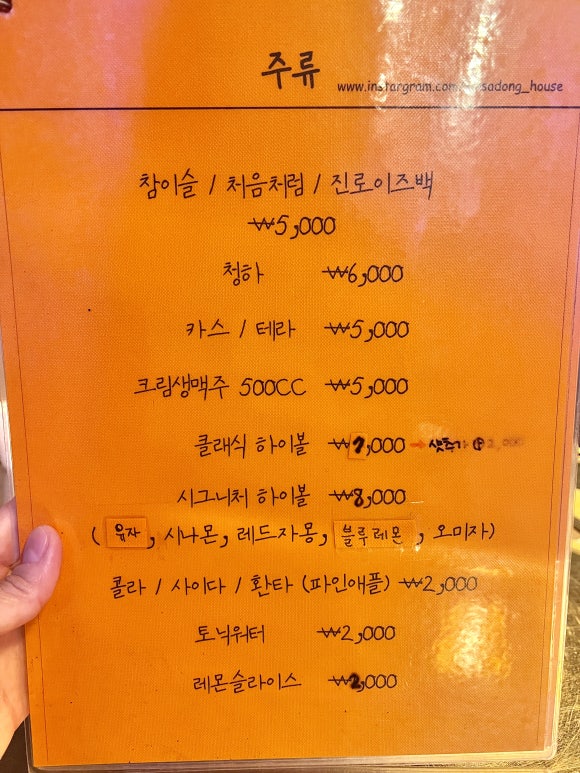 주류
www.instargram.com/ sadong_house
참이슬 / 처음처럼 / 진로이즈백
₩5,000
청하 ₩6,000
카스 / 테라 ₩5,000
크림생맥주 500CC ₩5,000
클래식 하이볼 ₩7,000 → 샷추가 ⓟ2,000
시그니처 하이볼 ₩8,000
( 유자, 시나몬, 레드자몽, 블루레몬, 오미자)
콜라 / 사이다 / 환타 (파인애플) ₩2,000
토닉워터 ₩2,000
레몬슬라이스 ₩2,000